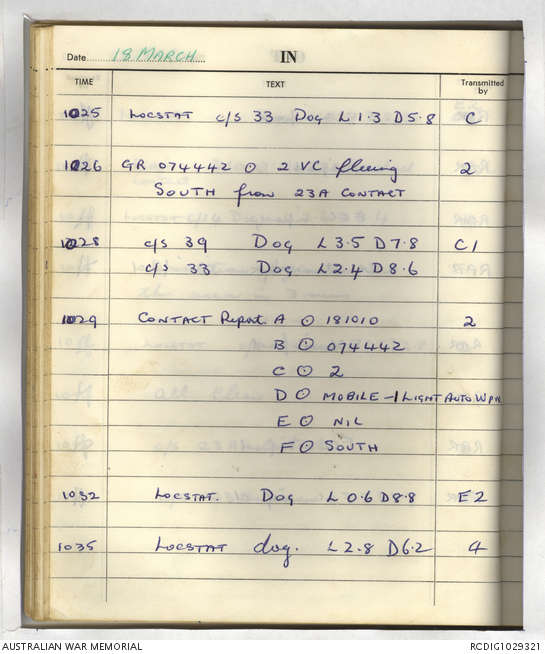 Date 18 MARCH IN
TIME TEXT Transmitted by
1025 LOCSTAT c/s 33 Dog L 1.3 D5.8 C
1026 GR 074442 ⊙ 2 VC fleeing 2
SOUTH from 23A CONTACT
1028 c/s 39 Dog L 3.5 D7.8 C1
c/s 33 Dog L2.4 D8.6
1029 CONTACT Report A ⊙ 181010 2
B ⊙ 074442
C ⊙ 2
D ⊙ MOBILE - 1 LIGHT AUTO WPN
E ⊙ NIL
F ⊙ SOUTH
1032 LOCSTAT. Dog L 0.6 D8.8 E2
1035 LOCSTAT dog. L 2.8 D6.2 4
AUSTRALIAN WAR MEMORIAL RCDIG1029321